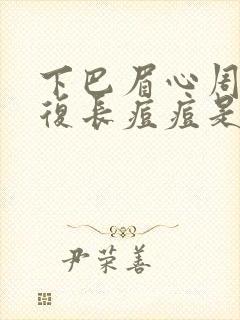 下巴眉心周
復長痘痘是
尹荣善